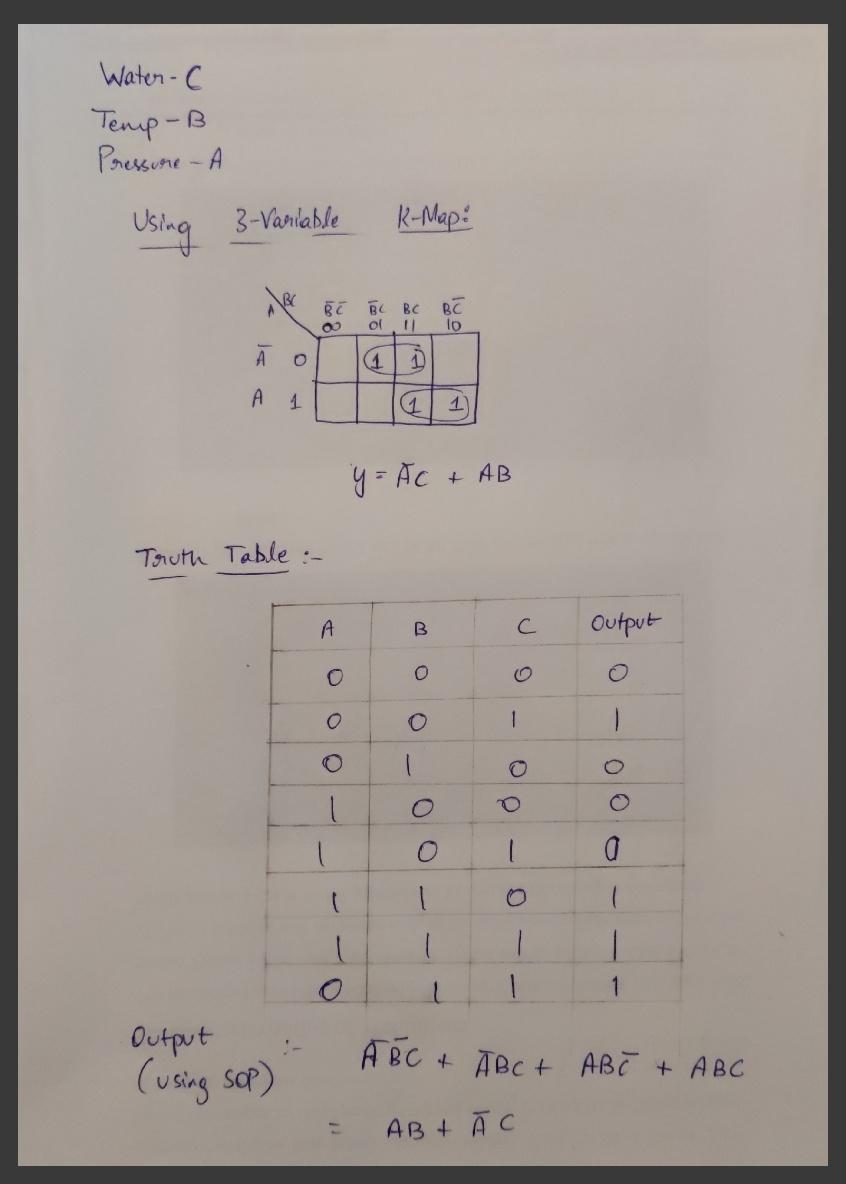 Water - C
Temp - B
Pressure - A
Using 3-Variable K-Map:
A BC B̅C̅ B̅C BC BC̅
00 01 11 10
A̅ 0 1 1
A 1 1 1
y = A̅C + AB
Truth Table :-
A B C Output
0 0 0 0
0 0 1 1
0 1 0 0
1 0 0 0
1 0 1 0
1 1 0 1
1 1 1 1
0 1 1 1
Output :- A̅B̅C + A̅BC + ABC̅ + ABC
(using SOP)
= AB + A̅C